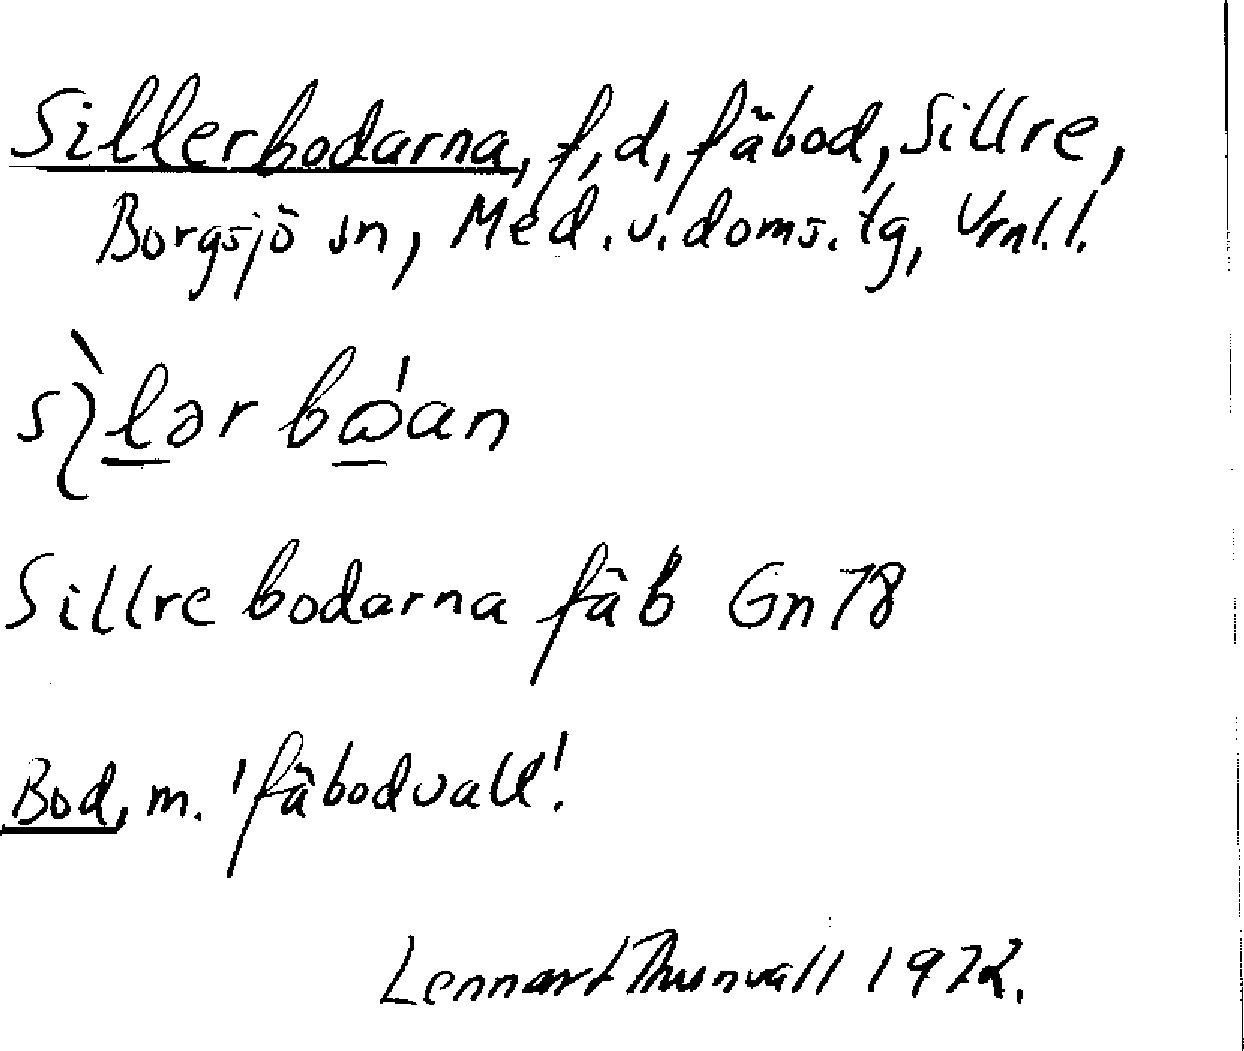 Sillerbodarna, f,d, fäbod, Sillre,
Borgsjö sn, Med.v.doms.tg, Vrnl.l.
Sillre bodarna fäb Gn 78
Bod, m. 'fäbodvall'.
Lennart Thunvall 1972.